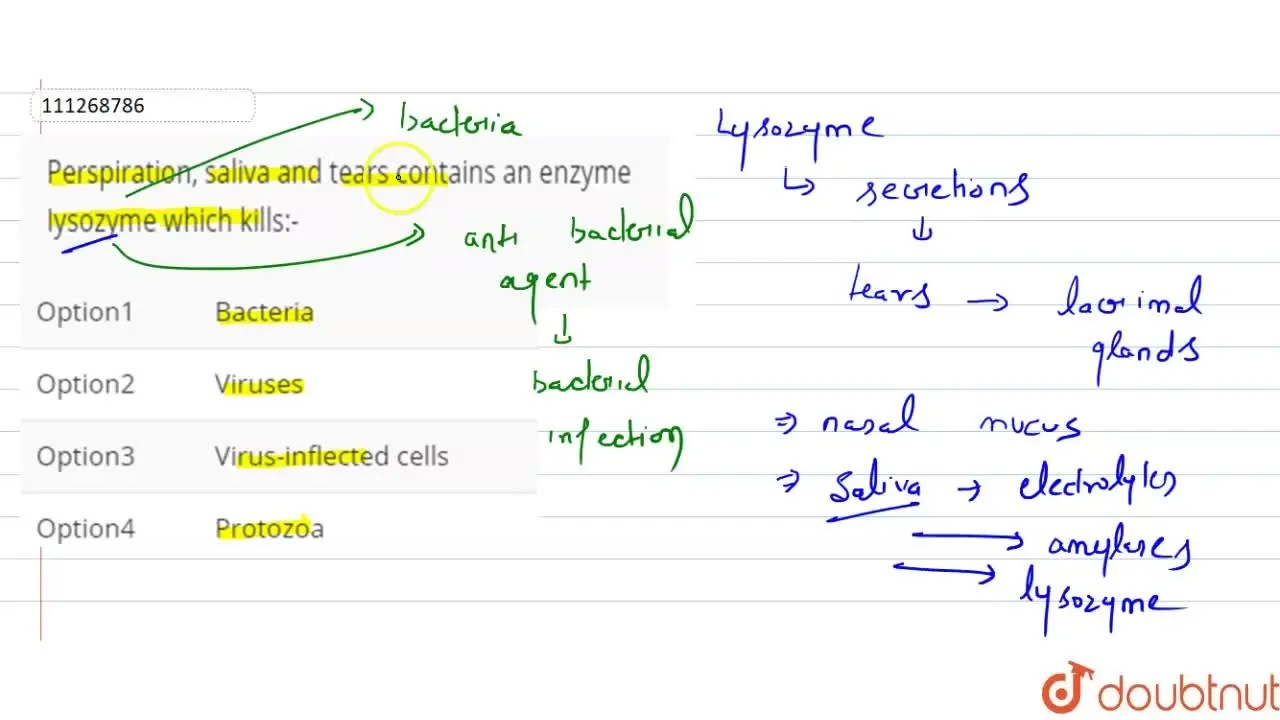 111268786
Perspiration, saliva and tears contains an enzyme
lysozyme which kills:-
Option1 Bacteria
Option2 Viruses
Option3 Virus-inflected cells
Option4 Protozoa
bacteria
anti bacterial
agent
bacterial
infection
Lysozyme
secretions
tears → lacrimal
glands
⇒ nasal mucus
⇒ Saliva → electrolytes
amylases
lysozyme
doubtnut